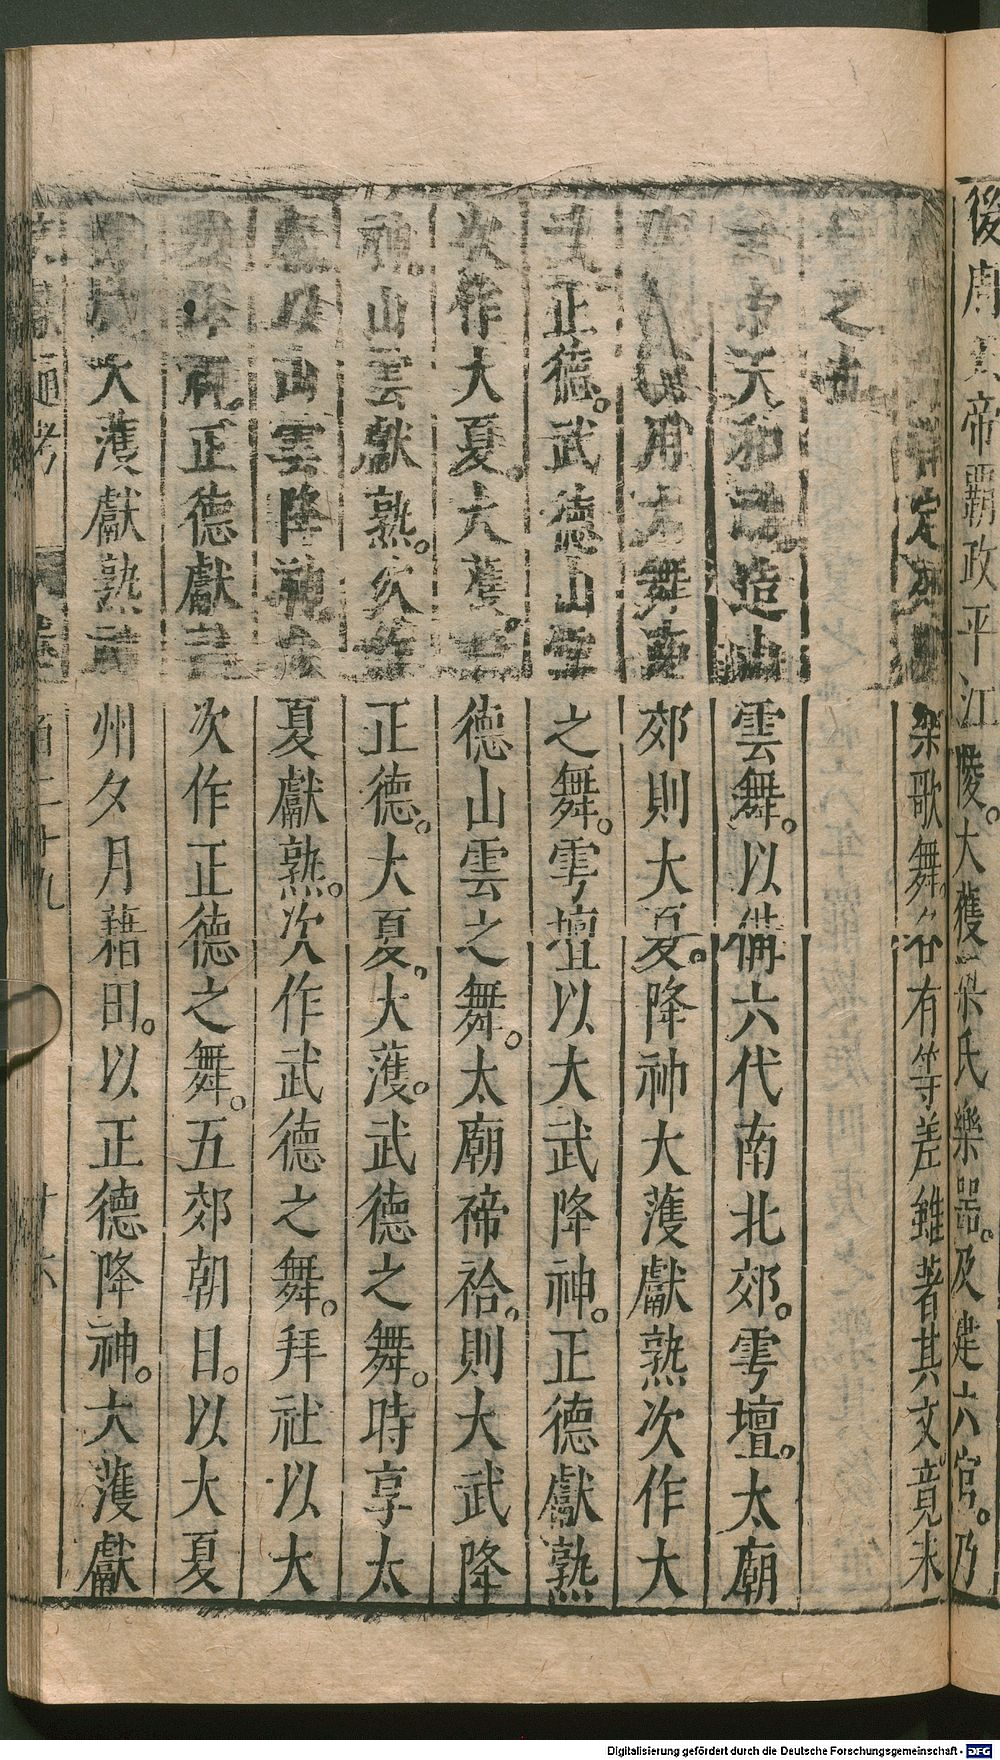 後周文帝霸政平江陵。大獲梁氏樂器。及建六官。乃
詳定郊廟樂歌舞。各有等差雖著其文。竟未
之行
天和初造山雲舞。以備六代南北郊。雩壇。太廟
用六舞南郊則大夏。降神大濩獻熟次作大
武正德。武德山雲之舞。雩壇以大武降神。正德獻熟
次作大夏。大濩。武德山雲之舞。太廟禘祫。則大武降
神。山雲獻熟。次作正德。大夏。大濩。武德之舞。時享太
廟以山雲降神大夏獻熟。次作武德之舞。拜社以大
降神。正德獻熟次作正德之舞。五郊朝日。以大夏
降神大濩獻熟神州夕月藉田。以正德降神。大濩獻
文獻通考 卷一百二十九 廿六
Digitalisierung gefördert durch die Deutsche Forschungsgemeinschaft - DFG